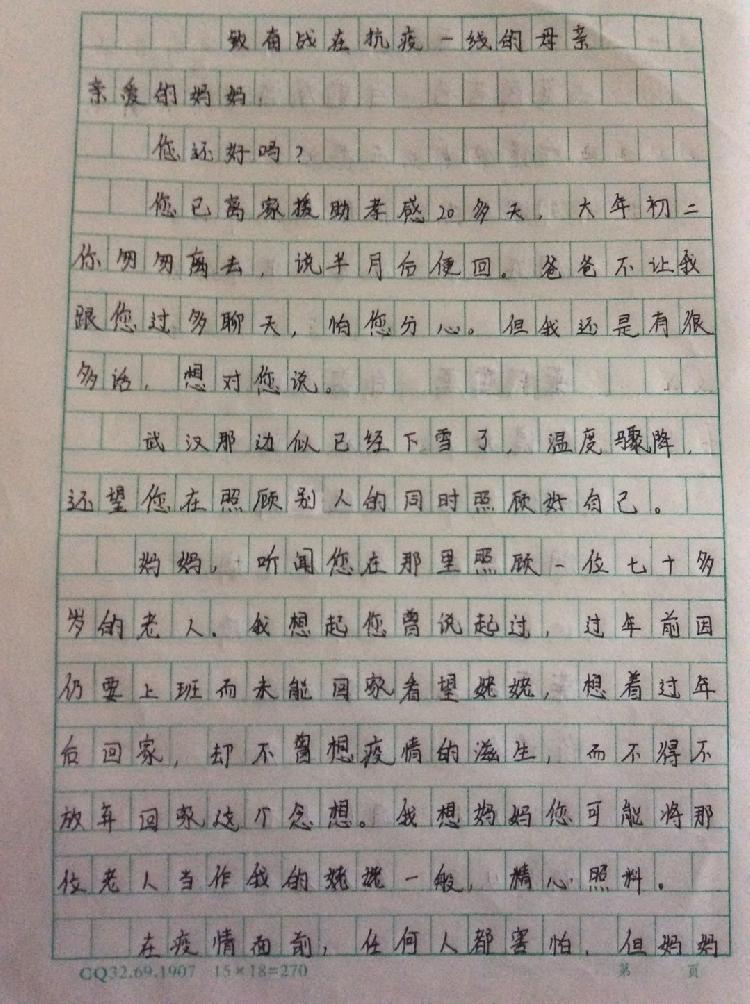 致奋战在抗疫一线的母亲
亲爱的妈妈，
您还好吗？
您已离家援助孝感20多天，大年初二
你匆匆离去，说半月后便回。爸爸不让我
跟您过多聊天，怕您分心。但我还是有很
多话，想对您说。
武汉那边似已经下雪了，温度骤降，
还望您在照顾别人的同时照顾好自己。
妈妈，听闻您在那里照顾一位七十多
岁的老人。我想起您曾说起过，过年前因
仍要上班而未能回家看望姥姥，想着过年
后回家，却不曾想疫情的滋生，而不得不
放弃回家这个念想。我想妈妈您可能将那
位老人当作我的姥姥一般，精心照料。
在疫情面前，任何人都害怕，但妈妈
CQ32.69.1907 15×18=270 第 页